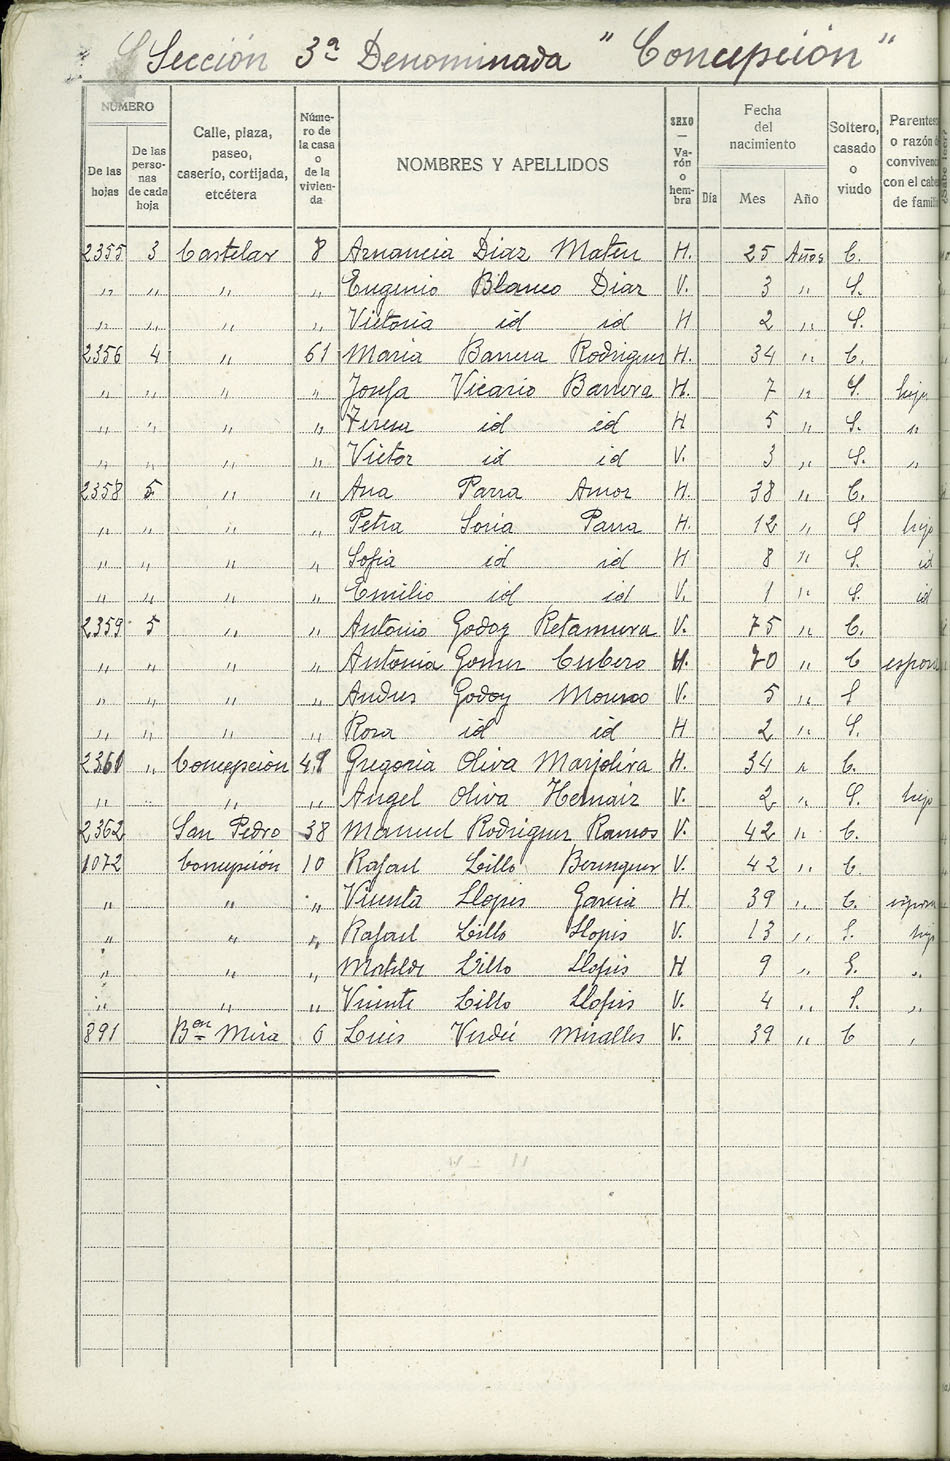 Sección 3ª Denominada "Concepción"
NÚMERO
De las hojas
De las perso- nas de cada hoja
Calle, plaza, paseo, caserío, cortijada, etcétera
Núme- ro de la casa o de la vivien- da
NOMBRES Y APELLIDOS
SEXO — Va- rón o hem- bra
Fecha del nacimiento
Día Mes Año
Soltero, casado o viudo
Parentes o razón d convivenc con el cabe de famili
2355 3 Castelar 8 Amancia Diaz Mateu H. 25 Años C.
„ „ „ „ Eugenio Blanco Diaz V. 3 „ S.
„ „ „ „ Victoria id id H 2 „ S.
2356 4 „ 61 Maria Barrera Rodriguez H. 34 „ C.
„ „ „ „ Josefa Vicario Barrera H. 7 „ S. hija
„ „ „ „ Teresa id id H 5 „ S. „
„ „ „ „ Victor id id V. 3 „ S. „
2358 5 „ „ Ana Parra Amor H. 38 „ C.
„ „ „ „ Petra Soria Parra H. 12 „ S hija
„ „ „ „ Sofia id id H 8 „ S. id
„ „ „ „ Emilio id id V. 1 „ S. id
2359 5 „ „ Antonio Godoy Retamura V. 75 „ C.
„ „ „ „ Antonia Gomez Cubero H. 70 „ C esposa
„ „ „ „ Andres Godoy Moreno V. 5 „ S
„ „ „ „ Rosa id id H 2 „ S.
2361 „ Concepción 49 Gregoria Oliva Marjoliva H. 34 „ C.
„ „ „ „ Angel Oliva Hernaiz V. 2 „ S. hijo
2362 San Pedro 38 Manuel Rodriguez Ramos V. 42 „ C.
1072 Concepción 10 Rafael Lillo Berenguer V. 42 „ C.
„ „ „ Vicenta Llopis Garcia H. 39 „ C. esposa
„ „ „ Rafael Lillo Llopis V. 13 „ S. hijo
„ „ „ Matilde Lillo Llopis H 9 „ S. „
„ „ „ Vicente Lillo Llopis V. 4 „ S. „
891 Ben Mira 6 Luis Verdú Miralles V. 39 „ C „